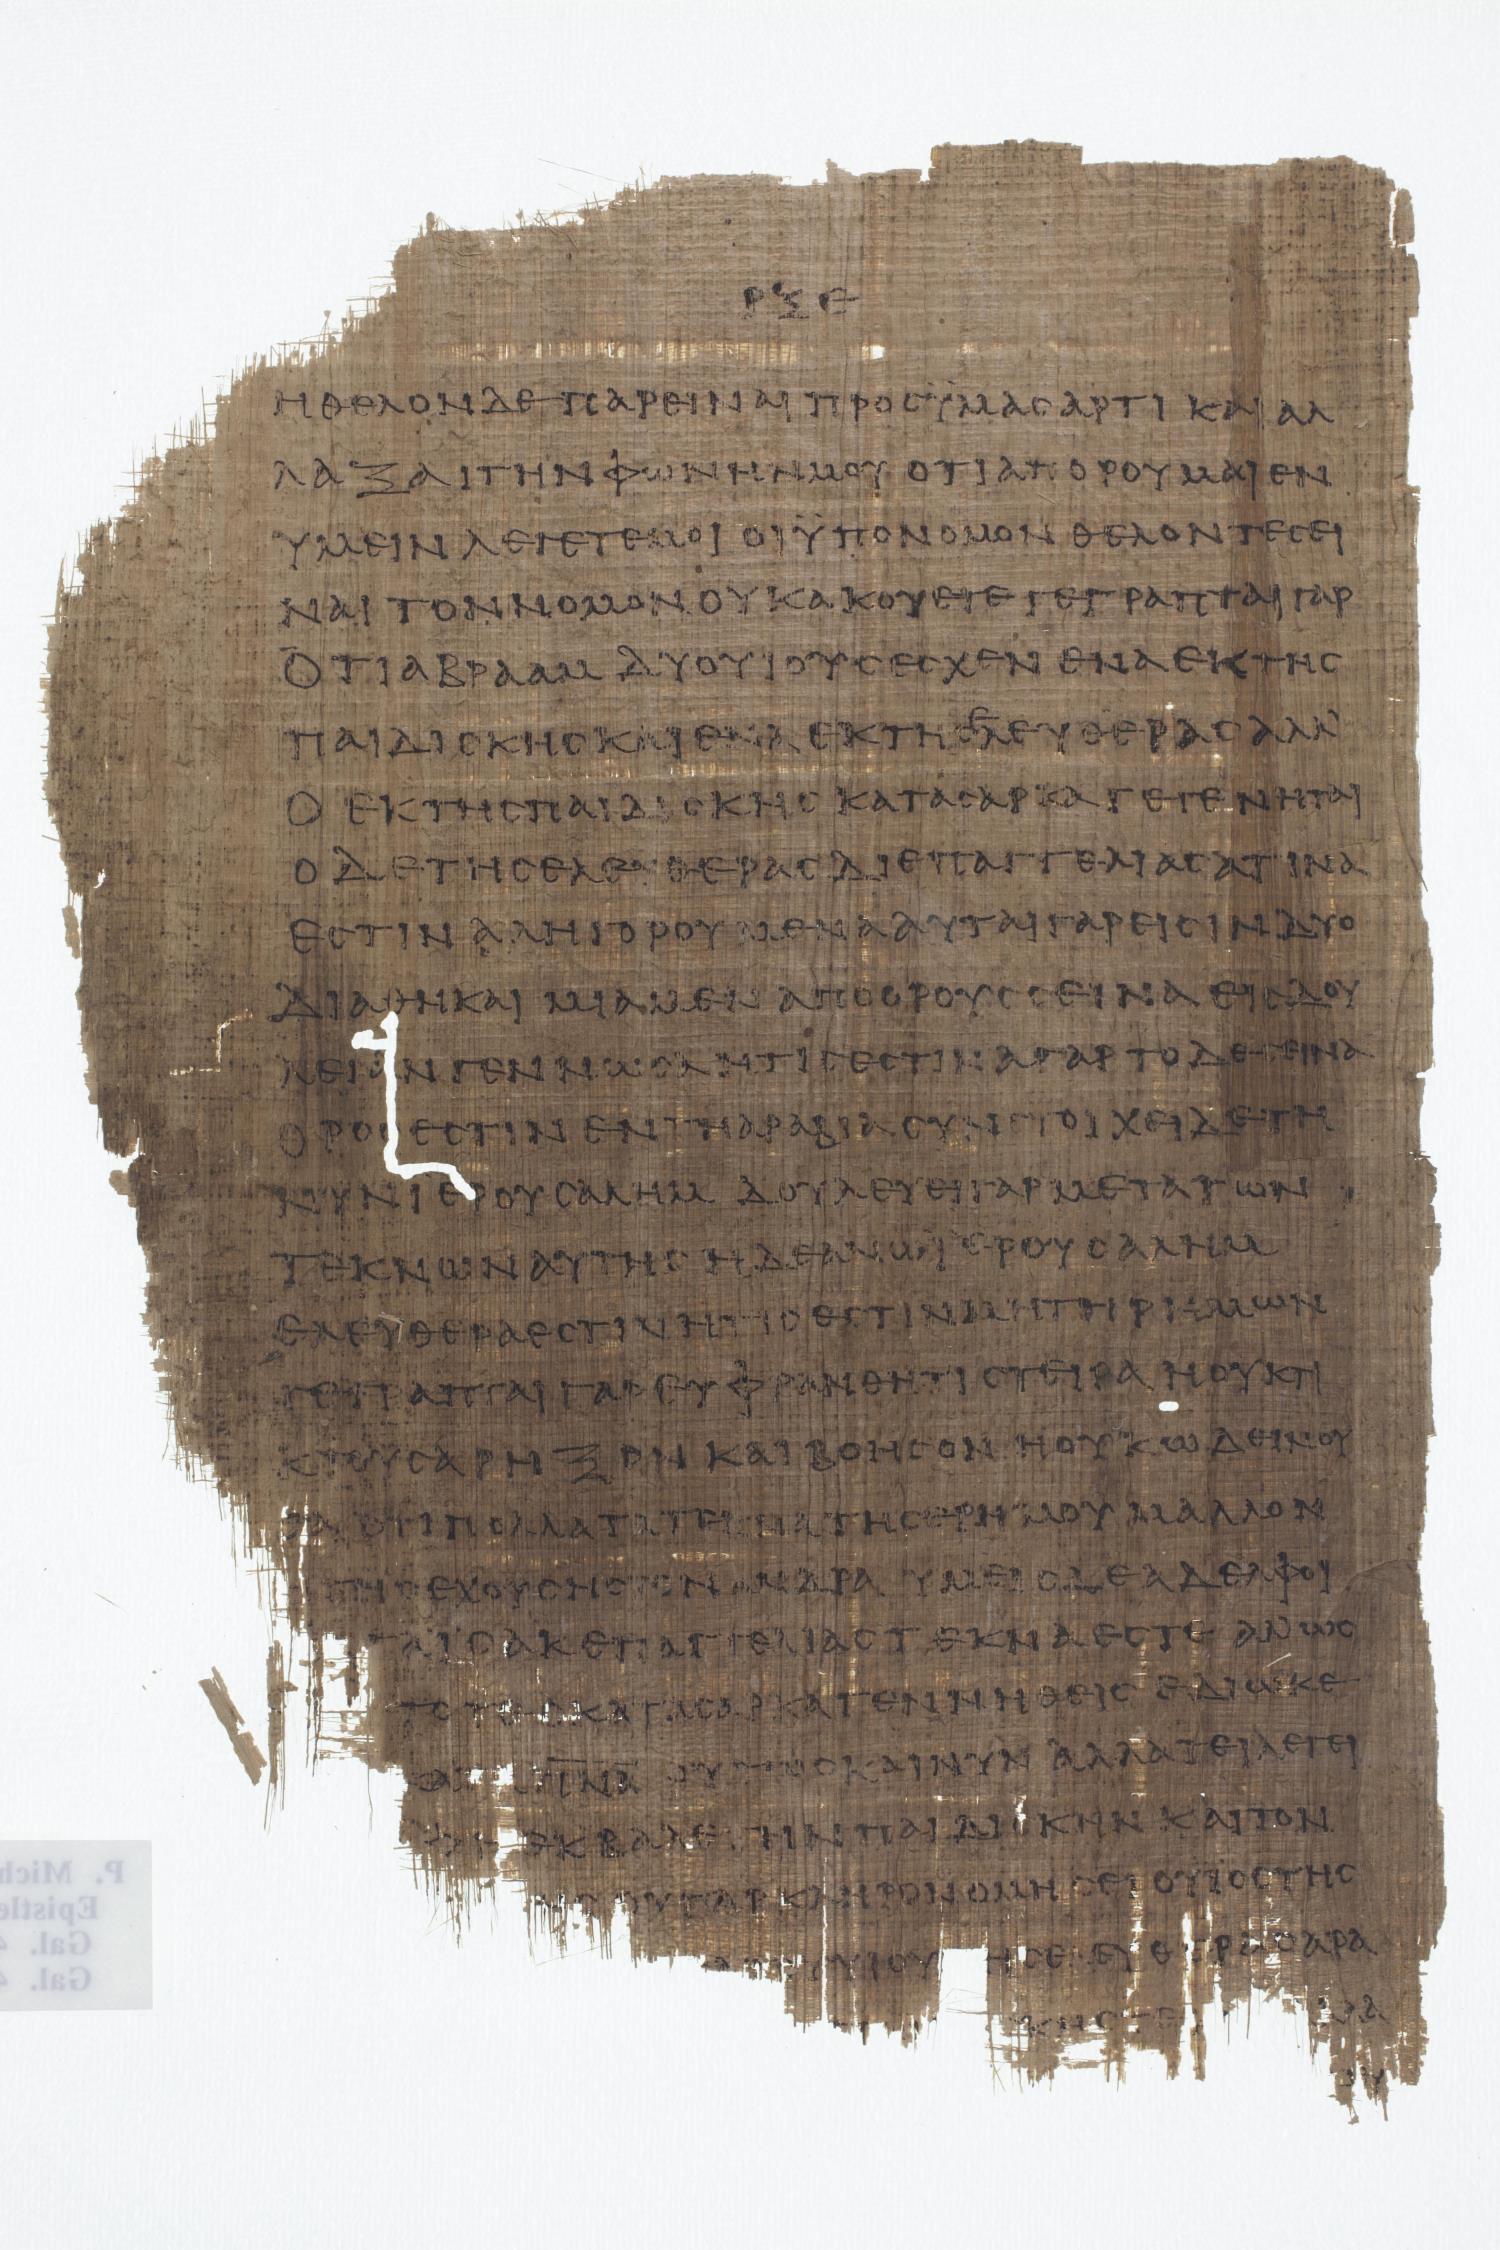 ΡΞΕ
ΗΘΕΛΟΝΔΕΠΑΡΕΙΝΑΙΠΡΟΣΫΜΑΣΑΡΤΙ ΚΑΙΑΛ
ΛΑΞΑΙΤΗΝΦΩΝΗΝΜΟΥ ΟΤΙΑΠΟΡΟΥΜΑΙΕΝ
ΥΜΕΙΝ ΛΕΓΕΤΕΜΟΙ ΟΙΫΠΟΝΟΜΟΝ ΘΕΛΟΝΤΕΣΕΙ
ΝΑΙ ΤΟΝΝΟΜΟΝΟΥΚΑΚΟΥΕΤΕ ΓΕΓΡΑΠΤΑΙΓΑΡ
ΟΤΙΑΒΡΑΑΜ ΔΥΟΥΙΟΥΣΕΣΧΕΝ ΕΝΑΕΚΤΗΣ
ΠΑΙΔΙΣΚΗΣΚΑΙΕΝΑΕΚΤΗΣΕΛΕΥΘΕΡΑΣΑΛΛ
Ο ΕΚΤΗΣΠΑΙΔΙΣΚΗΣ ΚΑΤΑΣΑΡΚΑΓΕΓΕΝΗΤΑΙ
ΟΔΕΤΗΣΕΛΕΥΘΕΡΑΣΔΙΕΠΑΓΓΕΛΙΑΣΑΤΙΝΑ
ΕΣΤΙΝ ΑΛΛΗΓΟΡΟΥΜΕΝΑΑΥΤΑΙΓΑΡΕΙΣΙΝΔΥΟ
ΔΙΑΘΗΚΑΙ ΜΙΑΜΕΝ ΑΠΟΟΡΟΥΣΣΕΙΝΑΕΙΣΔΟΥ
ΛΕΙΑΝΓΕΝΝΩΣΑΗΤΙΣΕΣΤΙΝΑΓΑΡ ΤΟΔΕΣΕΙΝΑ
ΟΡΟΣΕΣΤΙΝ ΕΝΤΗΑΡΑΒΙΑΣΥΝΣΤΟΙΧΕΙΔΕΤΗ
ΝΥΝΙΕΡΟΥΣΑΛΗΜ ΔΟΥΛΕΥΕΙΓΑΡΜΕΤΑΤΩΝ
ΤΕΚΝΩΝΑΥΤΗΣ ΗΔΕΑΝΩΙΕΡΟΥΣΑΛΗΜ
ΕΛΕΥΘΕΡΑΕΣΤΙΝΗΤΙΣΕΣΤΙΝΜΗΤΗΡΗΜΩΝ
ΓΕΓΡΑΠΤΑΙΓΑΡΕΥΦΡΑΝΘΗΤΙΣΤΕΙΡΑΗΟΥΚΤΙ
ΚΤΟΥΣΑΡΗΞΟΝ ΚΑΙΒΟΗΣΟΝ ΗΟΥΚΩΔΕΙΝΟΥ
ΣΑΟΤΙΠΟΛΛΑΤΑΤΕΚΝΑΤΗΣΕΡΗΜΟΥΜΑΛΛΟΝ
ΤΗΣΕΧΟΥΣΗΣΤΟΝΑΝΔΡΑ ΥΜΕΙΣΔΕΑΔΕΛΦΟΙ
ΣΑΑΚΕΠΑΓΓΕΛΙΑΣΤΕΚΝΑΕΣΤΕ ΑΛΛΩΣ
ΤΟΤΕΟΚΑΤΑΣΑΡΚΑΓΕΝΝΗΘΕΙΣ ΕΔΙΩΚΕ
ΠΝΑ ΟΥΤΩΣΚΑΙΝΥΝ ΑΛΛΑΤΕΙΛΕΓΕΙ
ΕΚΒΑΛΕΤΗΝΠΑΙΔΙΣΚΗΝ ΚΑΙΤΟΝ
ΟΥΓΑΡΚΛΗΡΟΝΟΜΗΣΕΙΟΥΙΟΣΤΗΣ
ΥΙΟΥ ΗΣΕΛΕΥΘΕΡΑΣΑΡΑ
ΚΗΣΤΕ